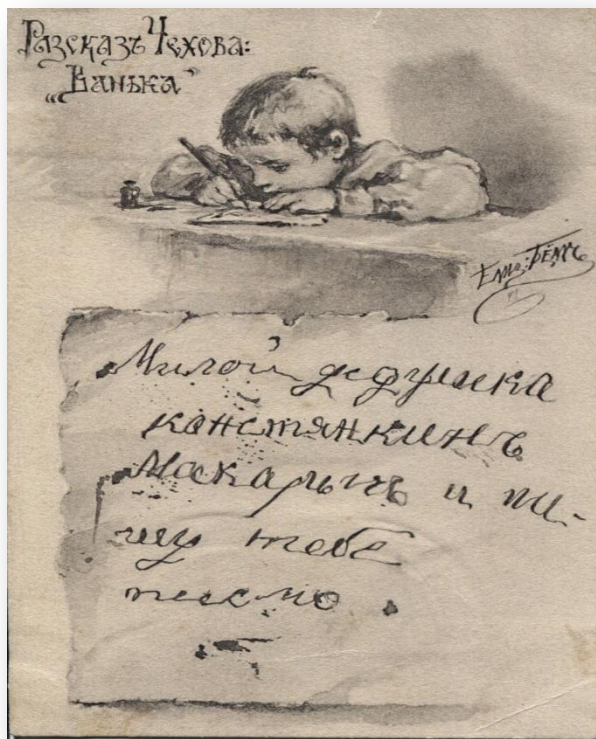 Разсказъ Чехова:
„Ванька"
Елиз: Бёмъ
Милой дедушка
канстянкинъ
Макарычъ и пи-
шу тебе
письмо.